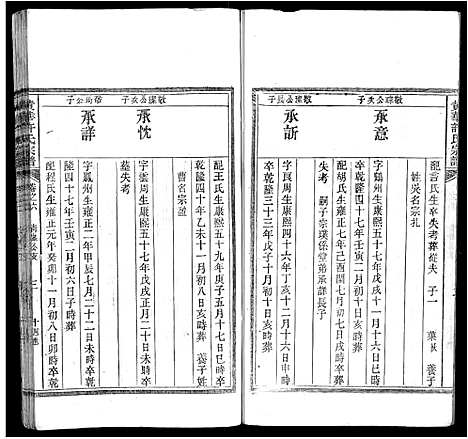 黃華許氏宗譜
配言氏生卒失考葬從夫 子一 葉氏 養子
姓吳名宗礼
敬瓈公次子
承意
字鶴州生康熙五十七年戊戌
配胡氏生雍正七年己酉閏七月初八日戌時
敬瓈公長子
承訢
字良周生康熙四十六年丁亥十月二十八日申時
嗣子宗璞係堂弟承課長子
卒乾隆三十三年戊子十一月初八日亥時葬
敬瓈公次子
承忱
配王氏生康熙五十九年庚子五月二十二日戌時卒
乾隆四十年乙未十一月初八日亥時葬 養子姓
曹名宗道
字雲周生康熙五十七年戊戌正月二十二日未時
葬失考
公子
承詳
字鳳州生雍正二年甲辰七月二十二日未時卒乾
隆四十七年壬寅二月初六日子時葬
配程氏生雍正元年癸卯十一月初八日卯時卒乾
黃華許氏宗譜
卷之六